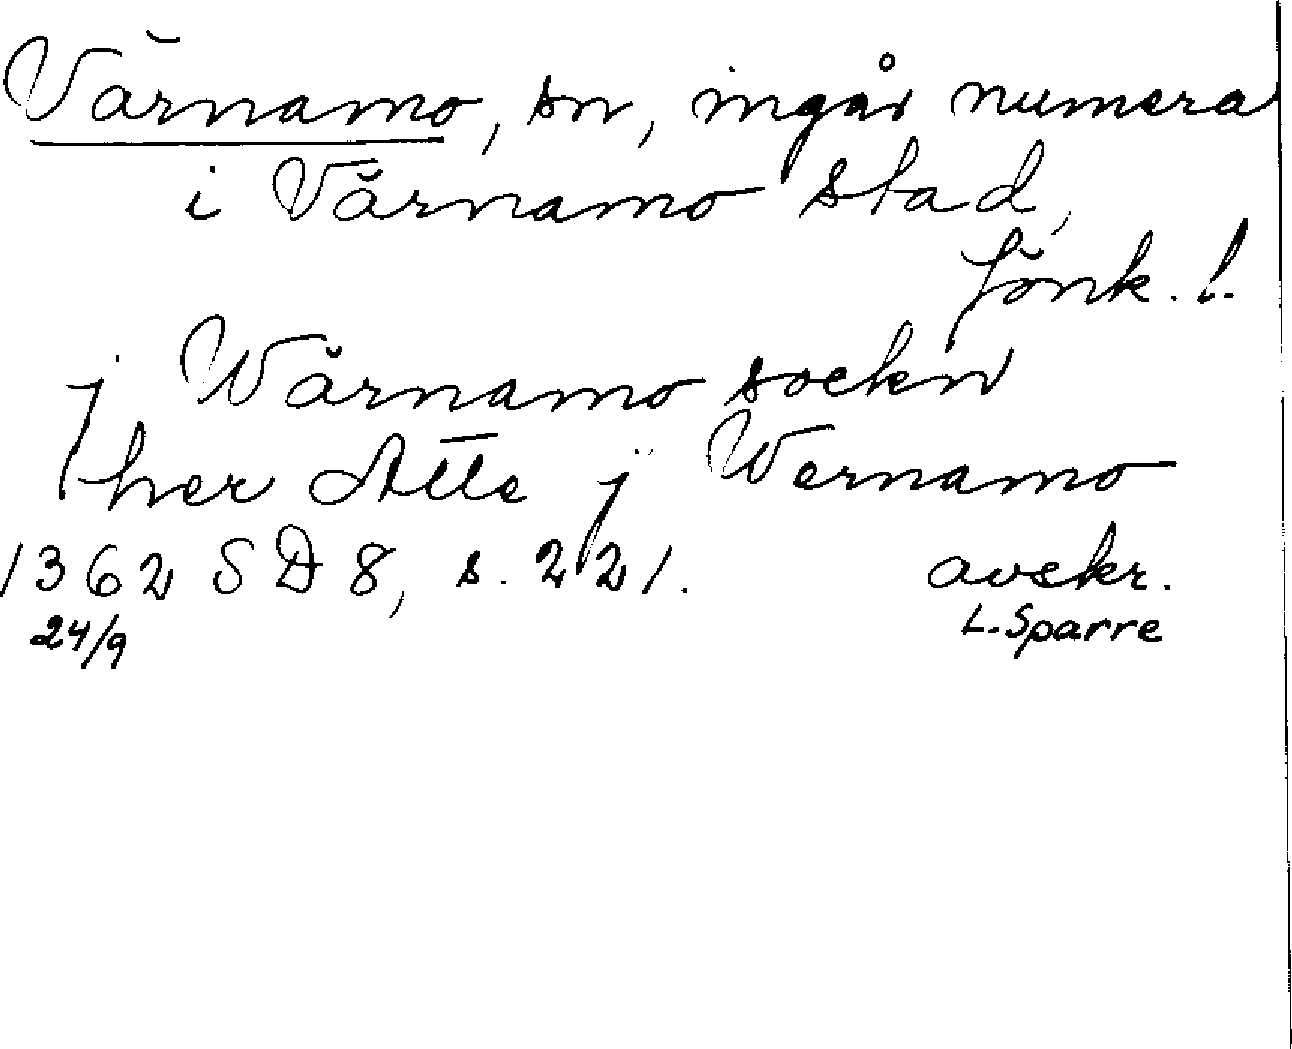 Värnamo, sn, ingår numera
i Värnamo stad,
Jönk. l.
j Wärnamo sockn
her Atte j Wernamo
1362 SD 8, s. 221. avskr.
24/9 L. Sparre